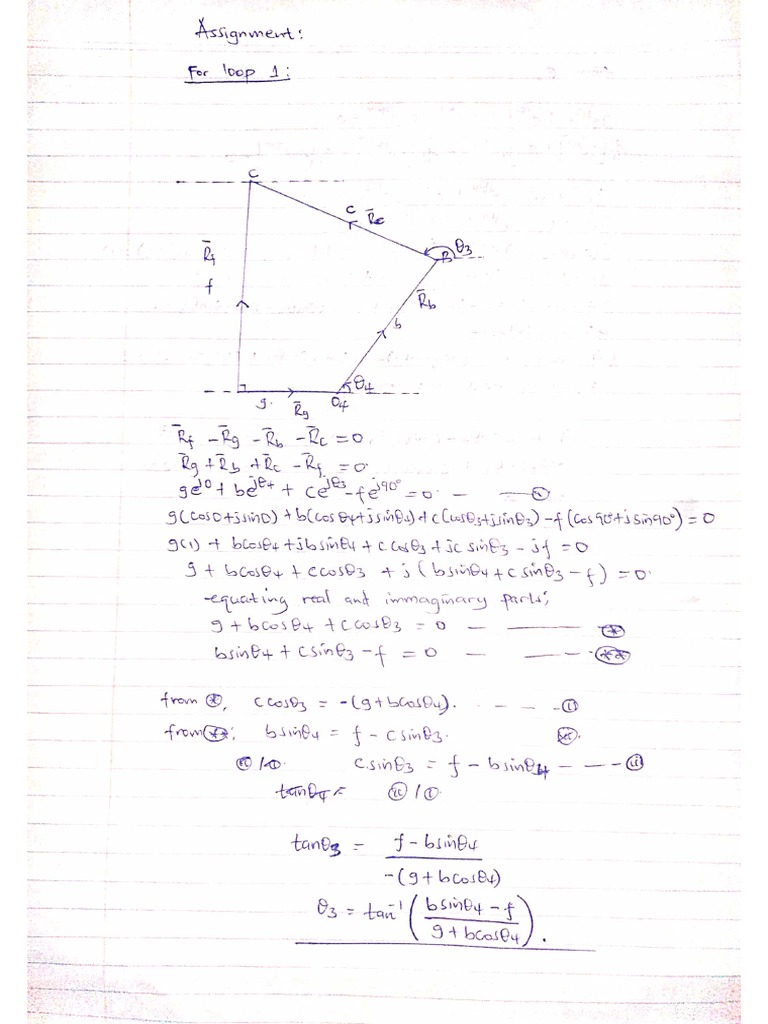 Assignment:
For loop 1:
C
C R̄c
θ3
B
R̄f
f
R̄b
b
θ4
g. R̄g O4
R̄f - R̄g - R̄b - R̄c = 0
R̄g + R̄b + R̄c - R̄f = 0
ge^j0 + be^jθ4 + ce^jθ3 - fe^j90° = 0 - —
g(cos0+jsin0) + b(cosθ4+jsinθ4) + c(cosθ3+jsinθ3) - f(cos90+jsin90°) = 0
g(1) + bcosθ4 + jbsinθ4 + ccosθ3 + jcsinθ3 - jf = 0
g + bcosθ4 + ccosθ3 + j(bsinθ4 + csinθ3 - f) = 0.
-equating real and immaginary parts;
g + bcosθ4 + ccosθ3 = 0 — - —— (*)
bsinθ4 + csinθ3 - f = 0 — - —— (**)
from (*), ccosθ3 = -(g + bcosθ4). - - - (i)
from (**); bsinθ4 = f - csinθ3.
csinθ3 = f - bsinθ4 - — - (ii)
tanθ4 = (ii)/(i)
tanθ3 = f - bsinθ4
-(g + bcosθ4)
θ3 = tan⁻¹ (bsinθ4 - f
g + bcosθ4).